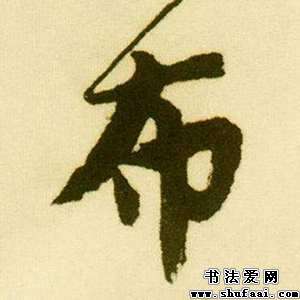 布
书法爱网
www.shufaai.com